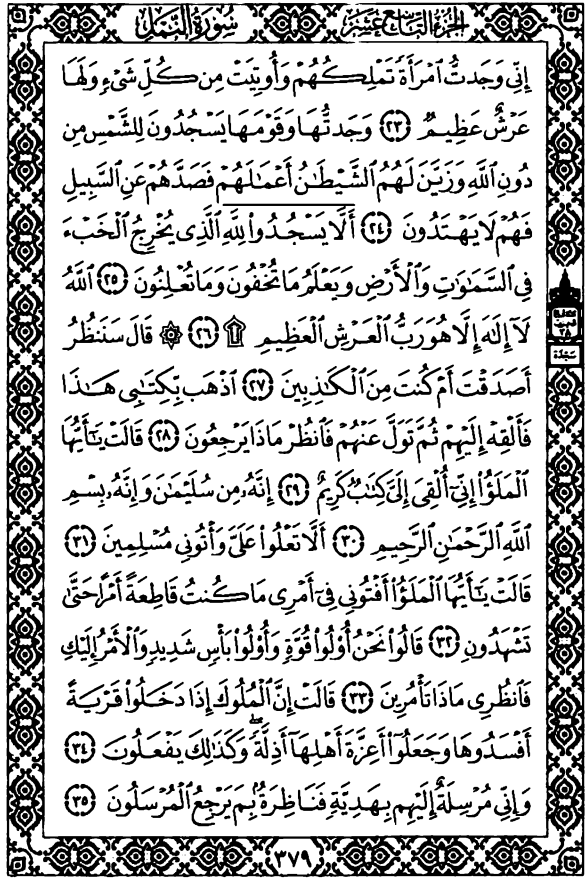 الجزء التاسع عشر سورة النمل
إِنِّي وَجَدتُّ ٱمْرَأَةً تَمْلِكُهُمْ وَأُوتِيَتْ مِن كُلِّ شَيْءٍ وَلَهَا
عَرْشٌ عَظِيمٌ ٢٣ وَجَدتُّهَا وَقَوْمَهَا يَسْجُدُونَ لِلشَّمْسِ مِن
دُونِ ٱللَّهِ وَزَيَّنَ لَهُمُ ٱلشَّيْطَٰنُ أَعْمَٰلَهُمْ فَصَدَّهُمْ عَنِ ٱلسَّبِيلِ
فَهُمْ لَا يَهْتَدُونَ ٢٤ أَلَّا يَسْجُدُوا۟ لِلَّهِ ٱلَّذِي يُخْرِجُ ٱلْخَبْءَ
فِي ٱلسَّمَٰوَٰتِ وَٱلْأَرْضِ وَيَعْلَمُ مَا تُخْفُونَ وَمَا تُعْلِنُونَ ٢٥ ٱللَّهُ
لَآ إِلَٰهَ إِلَّا هُوَ رَبُّ ٱلْعَرْشِ ٱلْعَظِيمِ ۩ ٢٦ ۞ قَالَ سَنَنظُرُ
أَصَدَقْتَ أَمْ كُنتَ مِنَ ٱلْكَٰذِبِينَ ٢٧ ٱذْهَب بِّكِتَٰبِي هَٰذَا
فَأَلْقِهْ إِلَيْهِمْ ثُمَّ تَوَلَّ عَنْهُمْ فَٱنظُرْ مَاذَا يَرْجِعُونَ ٢٨ قَالَتْ يَٰٓأَيُّهَا
ٱلْمَلَؤُا۟ إِنِّيٓ أُلْقِيَ إِلَيَّ كِتَٰبٌ كَرِيمٌ ٢٩ إِنَّهُۥ مِن سُلَيْمَٰنَ وَإِنَّهُۥ بِسْمِ
ٱللَّهِ ٱلرَّحْمَٰنِ ٱلرَّحِيمِ ٣٠ أَلَّا تَعْلُوا۟ عَلَيَّ وَأْتُونِي مُسْلِمِينَ ٣١
قَالَتْ يَٰٓأَيُّهَا ٱلْمَلَؤُا۟ أَفْتُونِي فِيٓ أَمْرِي مَا كُنتُ قَاطِعَةً أَمْرًا حَتَّىٰ
تَشْهَدُونِ ٣٢ قَالُوا۟ نَحْنُ أُو۟لُوا۟ قُوَّةٍ وَأُو۟لُوا۟ بَأْسٍ شَدِيدٍ وَٱلْأَمْرُ إِلَيْكِ
فَٱنظُرِي مَاذَا تَأْمُرِينَ ٣٣ قَالَتْ إِنَّ ٱلْمُلُوكَ إِذَا دَخَلُوا۟ قَرْيَةً
أَفْسَدُوهَا وَجَعَلُوٓا۟ أَعِزَّةَ أَهْلِهَآ أَذِلَّةً ۖ وَكَذَٰلِكَ يَفْعَلُونَ ٣٤
وَإِنِّي مُرْسِلَةٌ إِلَيْهِم بِهَدِيَّةٍ فَنَاظِرَةٌۢ بِمَ يَرْجِعُ ٱلْمُرْسَلُونَ ٣٥
الحزب
٣٨
سجدة
٣٧٩